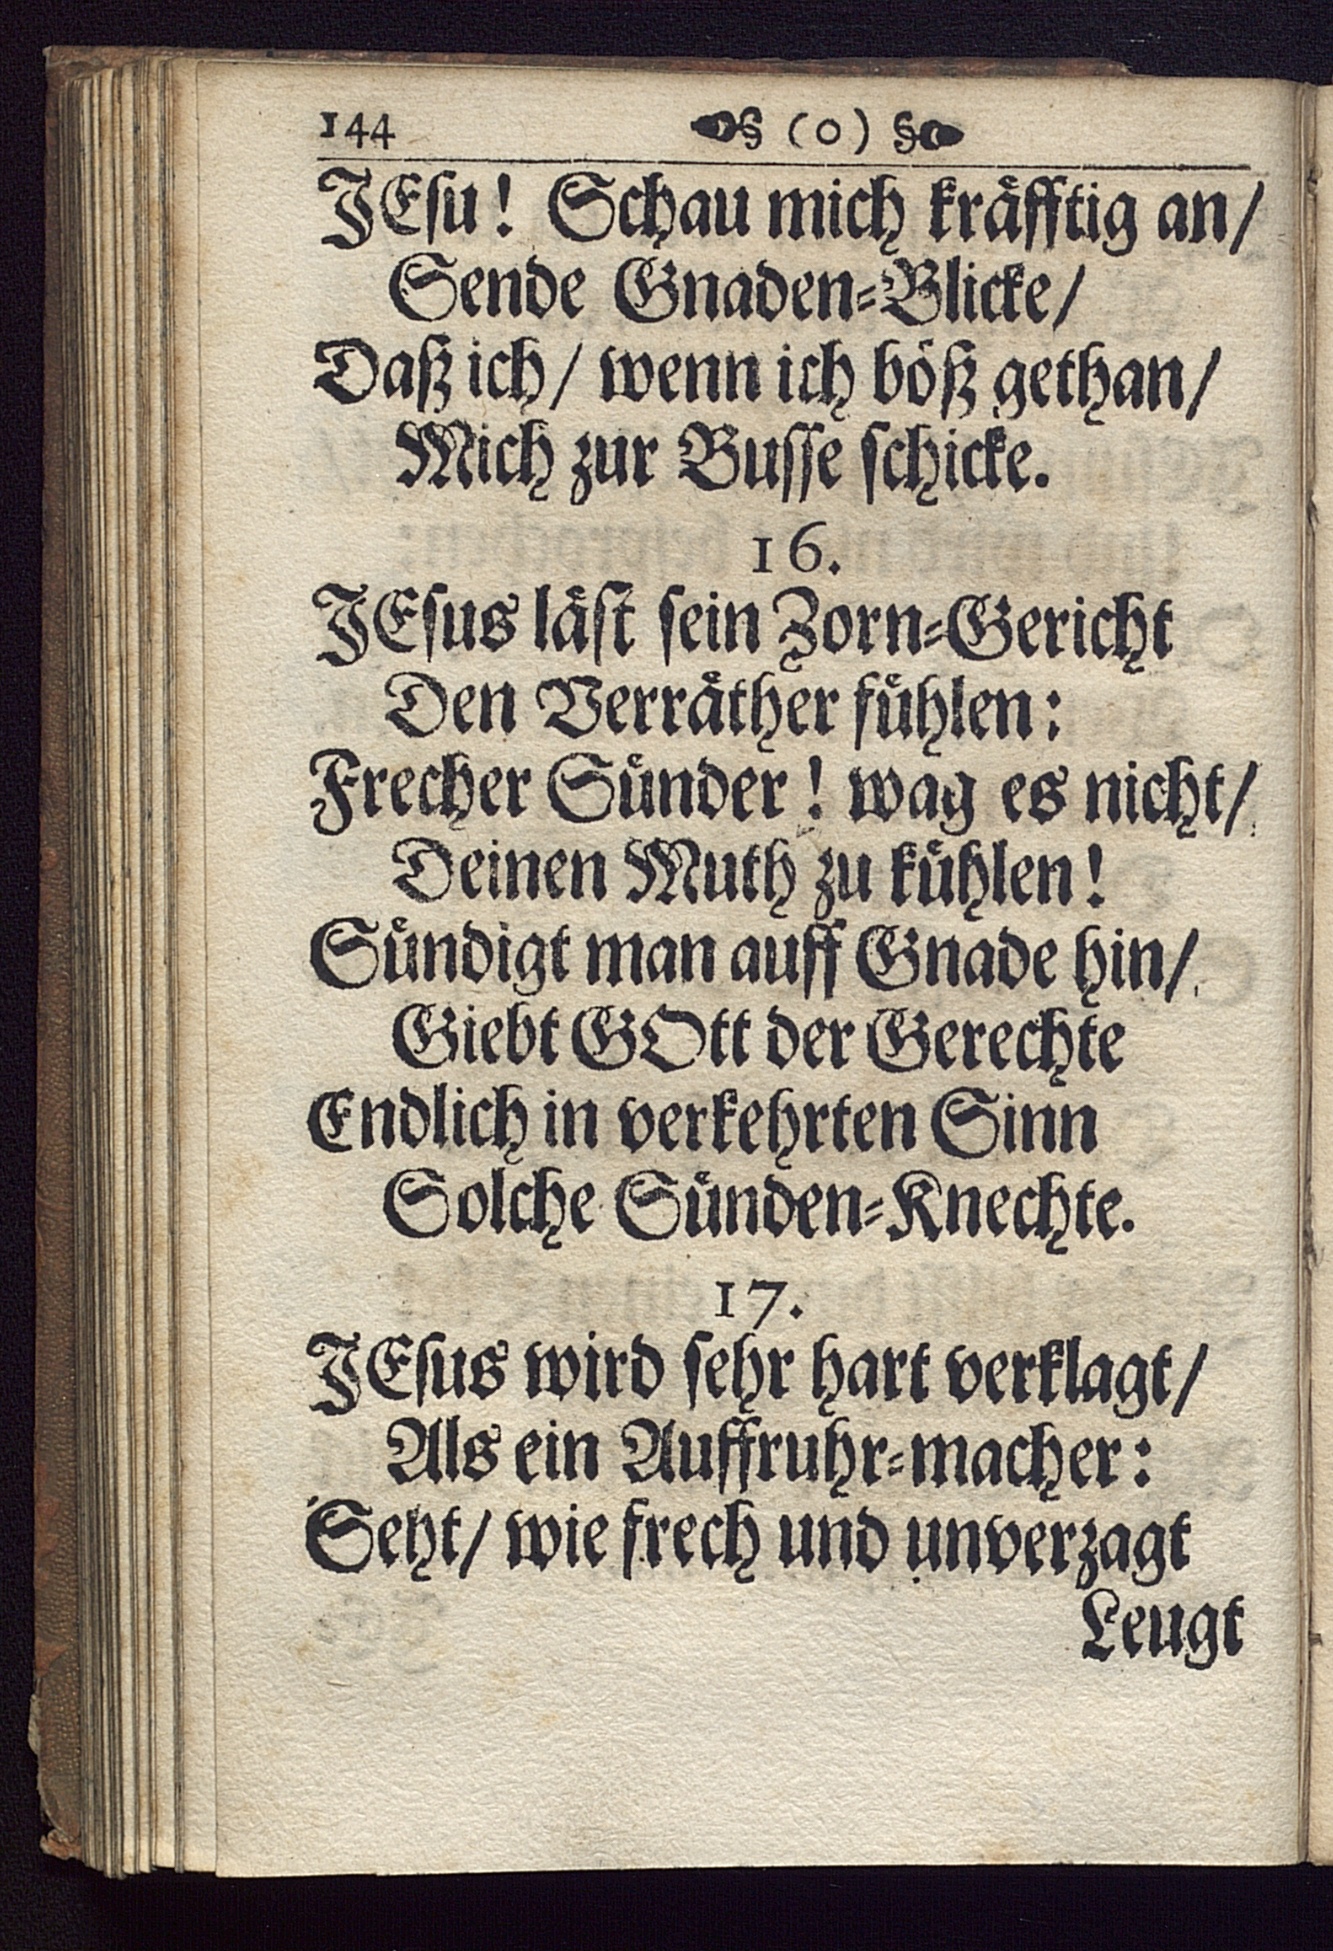 144 §(o)§
JEsu! Schau mich kräfftig an/
Sende Gnaden-Blicke/
Daß ich/ wenn ich böß gethan/
Mich zur Busse schicke.
16.
JEsus läst sein Zorn-Gericht
Den Verräther fühlen:
Frecher Sünder! wag es nicht/
Deinen Muth zu kühlen!
Sündigt man auff Gnade hin/
Giebt GOtt der Gerechte
Endlich in verkehrten Sinn
Solche Sünden-Knechte.
17.
JEsus wird sehr hart verklagt/
Als ein Auffruhr-macher:
Seht/ wie frech und unverzagt
Leugt